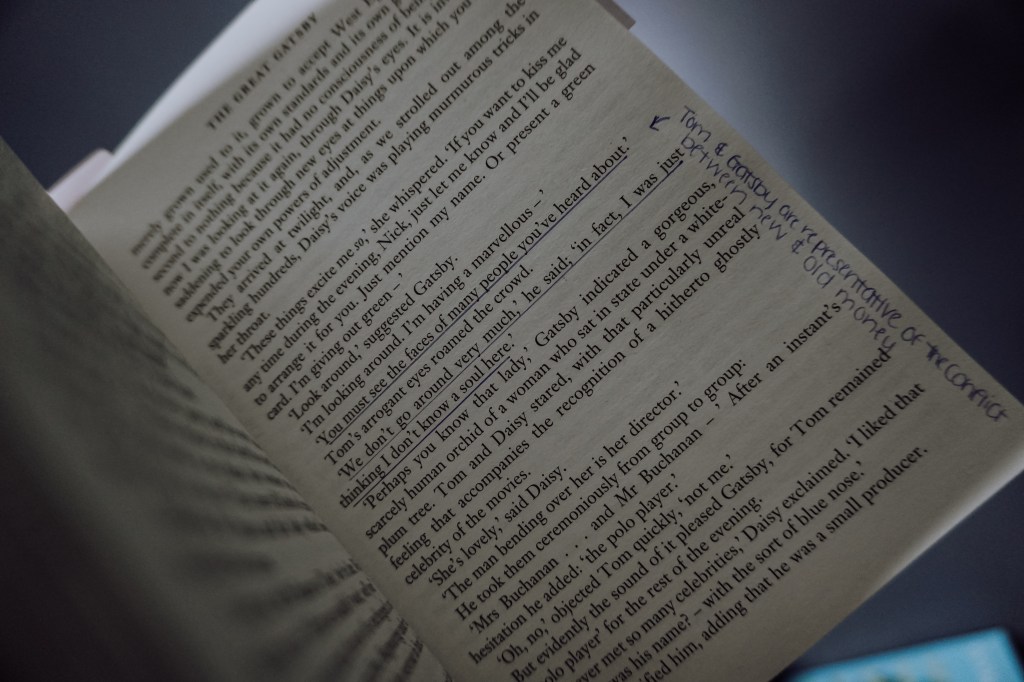 THE GREAT GATSBY
merely grown used to it, grown to accept West
complete in itself, with its own standards and its own
second to nothing because it had no consciousness of being
now I was looking at it again, through Daisy's eyes. It is
saddening to look through new eyes at things upon which you
expended your own powers of adjustment.
They arrived at twilight, and, as we strolled out among the
sparkling hundreds, Daisy's voice was playing murmurous tricks in
her throat.
'These things excite me so,' she whispered. 'If you want to kiss me
any time during the evening, Nick, just let me know and I'll be glad
to arrange it for you. Just mention my name. Or present a green
card. I'm giving out green –'
'Look around,' suggested Gatsby.
'I'm looking around. I'm having a marvellous –'
'You must see the faces of many people you've heard about.'
Tom's arrogant eyes roamed the crowd.
'We don't go around very much,' he said; 'in fact, I was just
thinking I don't know a soul here.'
'Perhaps you know that lady,' Gatsby indicated a gorgeous,
scarcely human orchid of a woman who sat in state under a white-
plum tree. Tom and Daisy stared, with that particularly unreal
feeling that accompanies the recognition of a hitherto ghostly
celebrity of the movies.
'She's lovely,' said Daisy.
'The man bending over her is her director.'
He took them ceremoniously from group to group:
'Mrs Buchanan . . . and Mr Buchanan –' After an instant's
hesitation he added: 'the polo player.'
'Oh, no,' objected Tom quickly, 'not me.'
But evidently the sound of it pleased Gatsby, for Tom remained
olo player' for the rest of the evening.
ever met so many celebrities,' Daisy exclaimed. 'I liked that
was his name? – with the sort of blue nose.'
ified him, adding that he was a small producer.
Tom & Gatsby are representative of the conflict
between new & old money